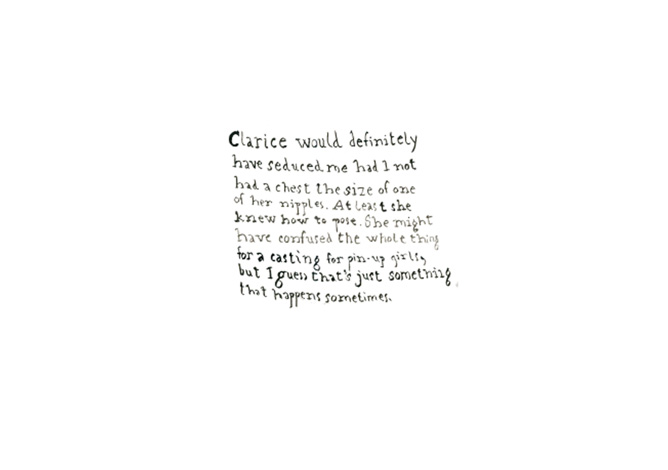 Clarice would definitely
have seduced me had I not
had a chest the size of one
of her nipples. At least she
knew how to pose. She might
have confused the whole thing
for a casting for pin-up girls,
but I guess that's just something
that happens sometimes.